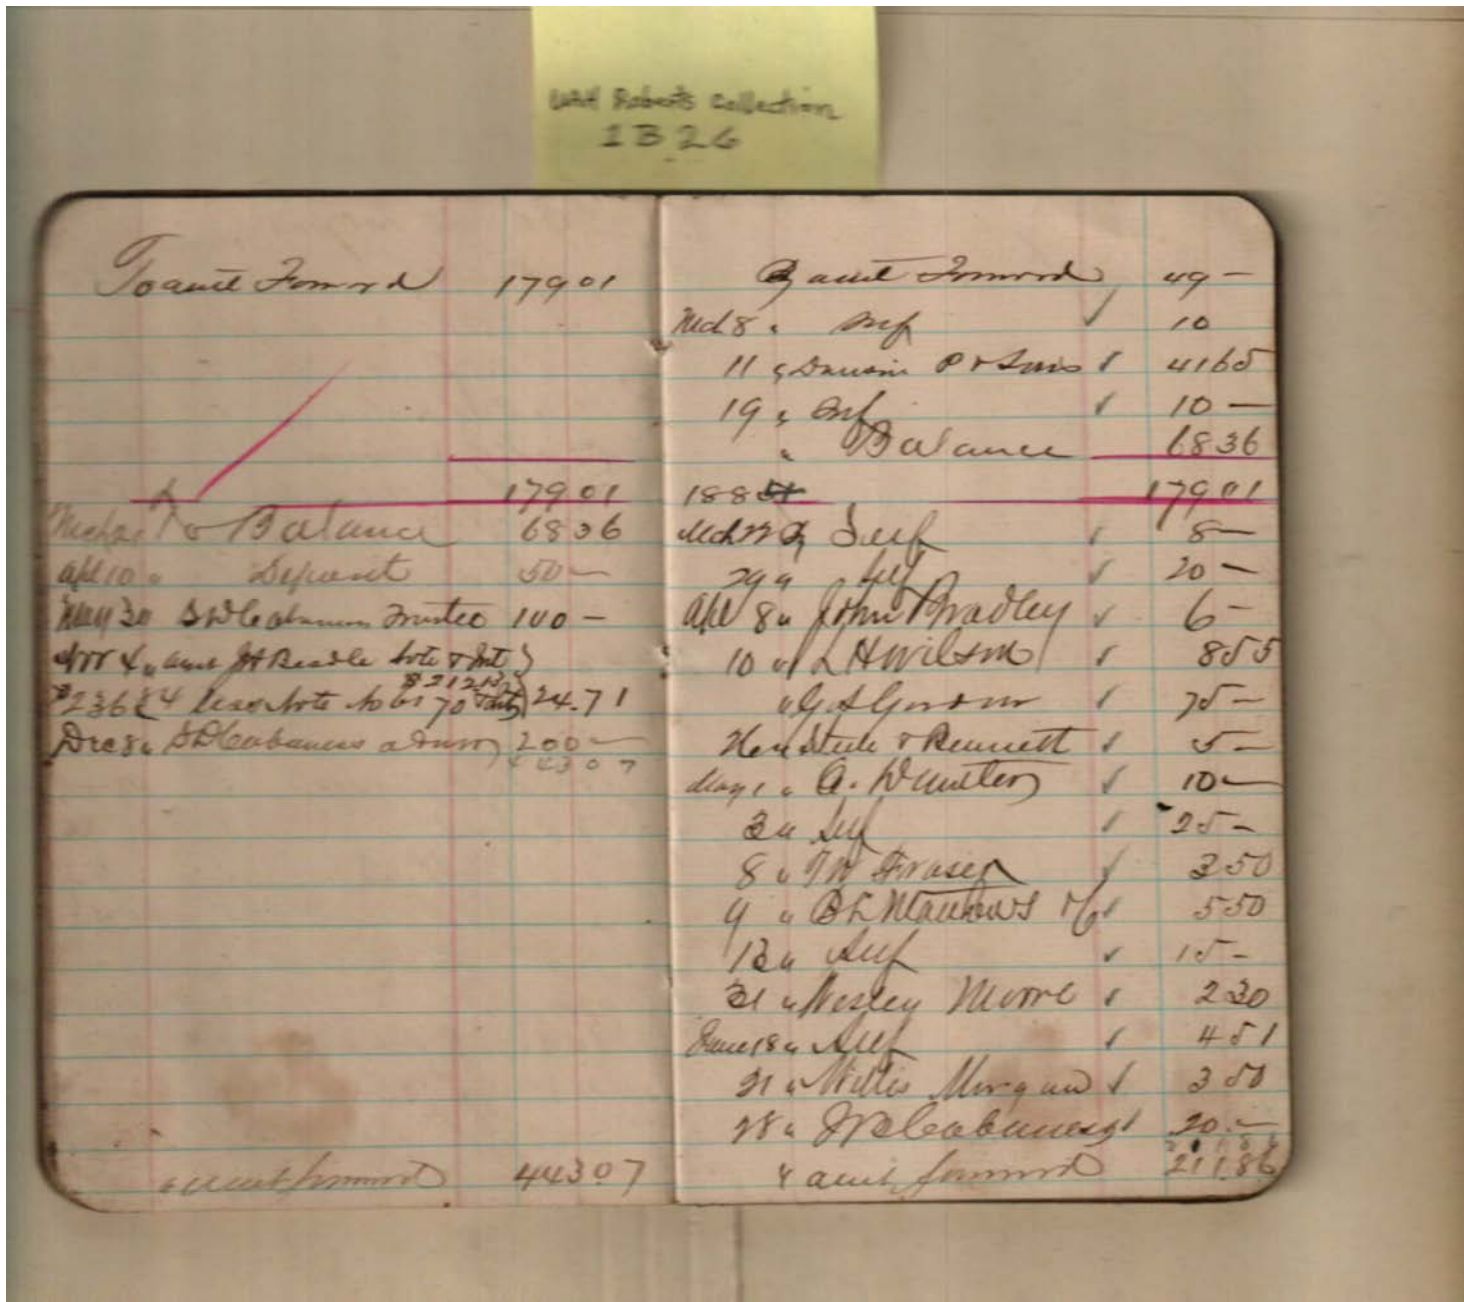 UAH Roberts Collection
1B26
To amt Forward 179 01
179 01
To Balance 68 36
Apl 10 " Deposit 50 —
May 30 Trustee 100 —
Nov 4 " amt Beadle Note & Int
$236 Less Note 70 24.71
Dec 8 " 200 —
443 07
amt forward 443 07
By amt Forward 49 —
Mch 8 " Self ✓ 10
11 " & Sons ✓ 41 65
19 " Self ✓ 10 —
" Balance 68 36
188 179 01
Mch 22 By Self ✓ 8 —
29 " Self ✓ 20 —
Apl 8 " John Bradley ✓ 6 —
10 " L H Wilson ✓ 8 55
" G A Gordon ✓ 75 —
26 " Steele & Bennett ✓ 5 —
May 1 " A. ✓ 10 —
3 " Self ✓ 25 —
8 " Fraser ✓ 3 50
9 " B L Matthews & Co ✓ 5 50
13 " Self ✓ 15 —
31 " Wesley Moore ✓ 2 30
June 18 " Self ✓ 4 51
21 " Willis Morgan ✓ 3 50
28 " Cabaness ✓ 20 —
" amt forward 211.86